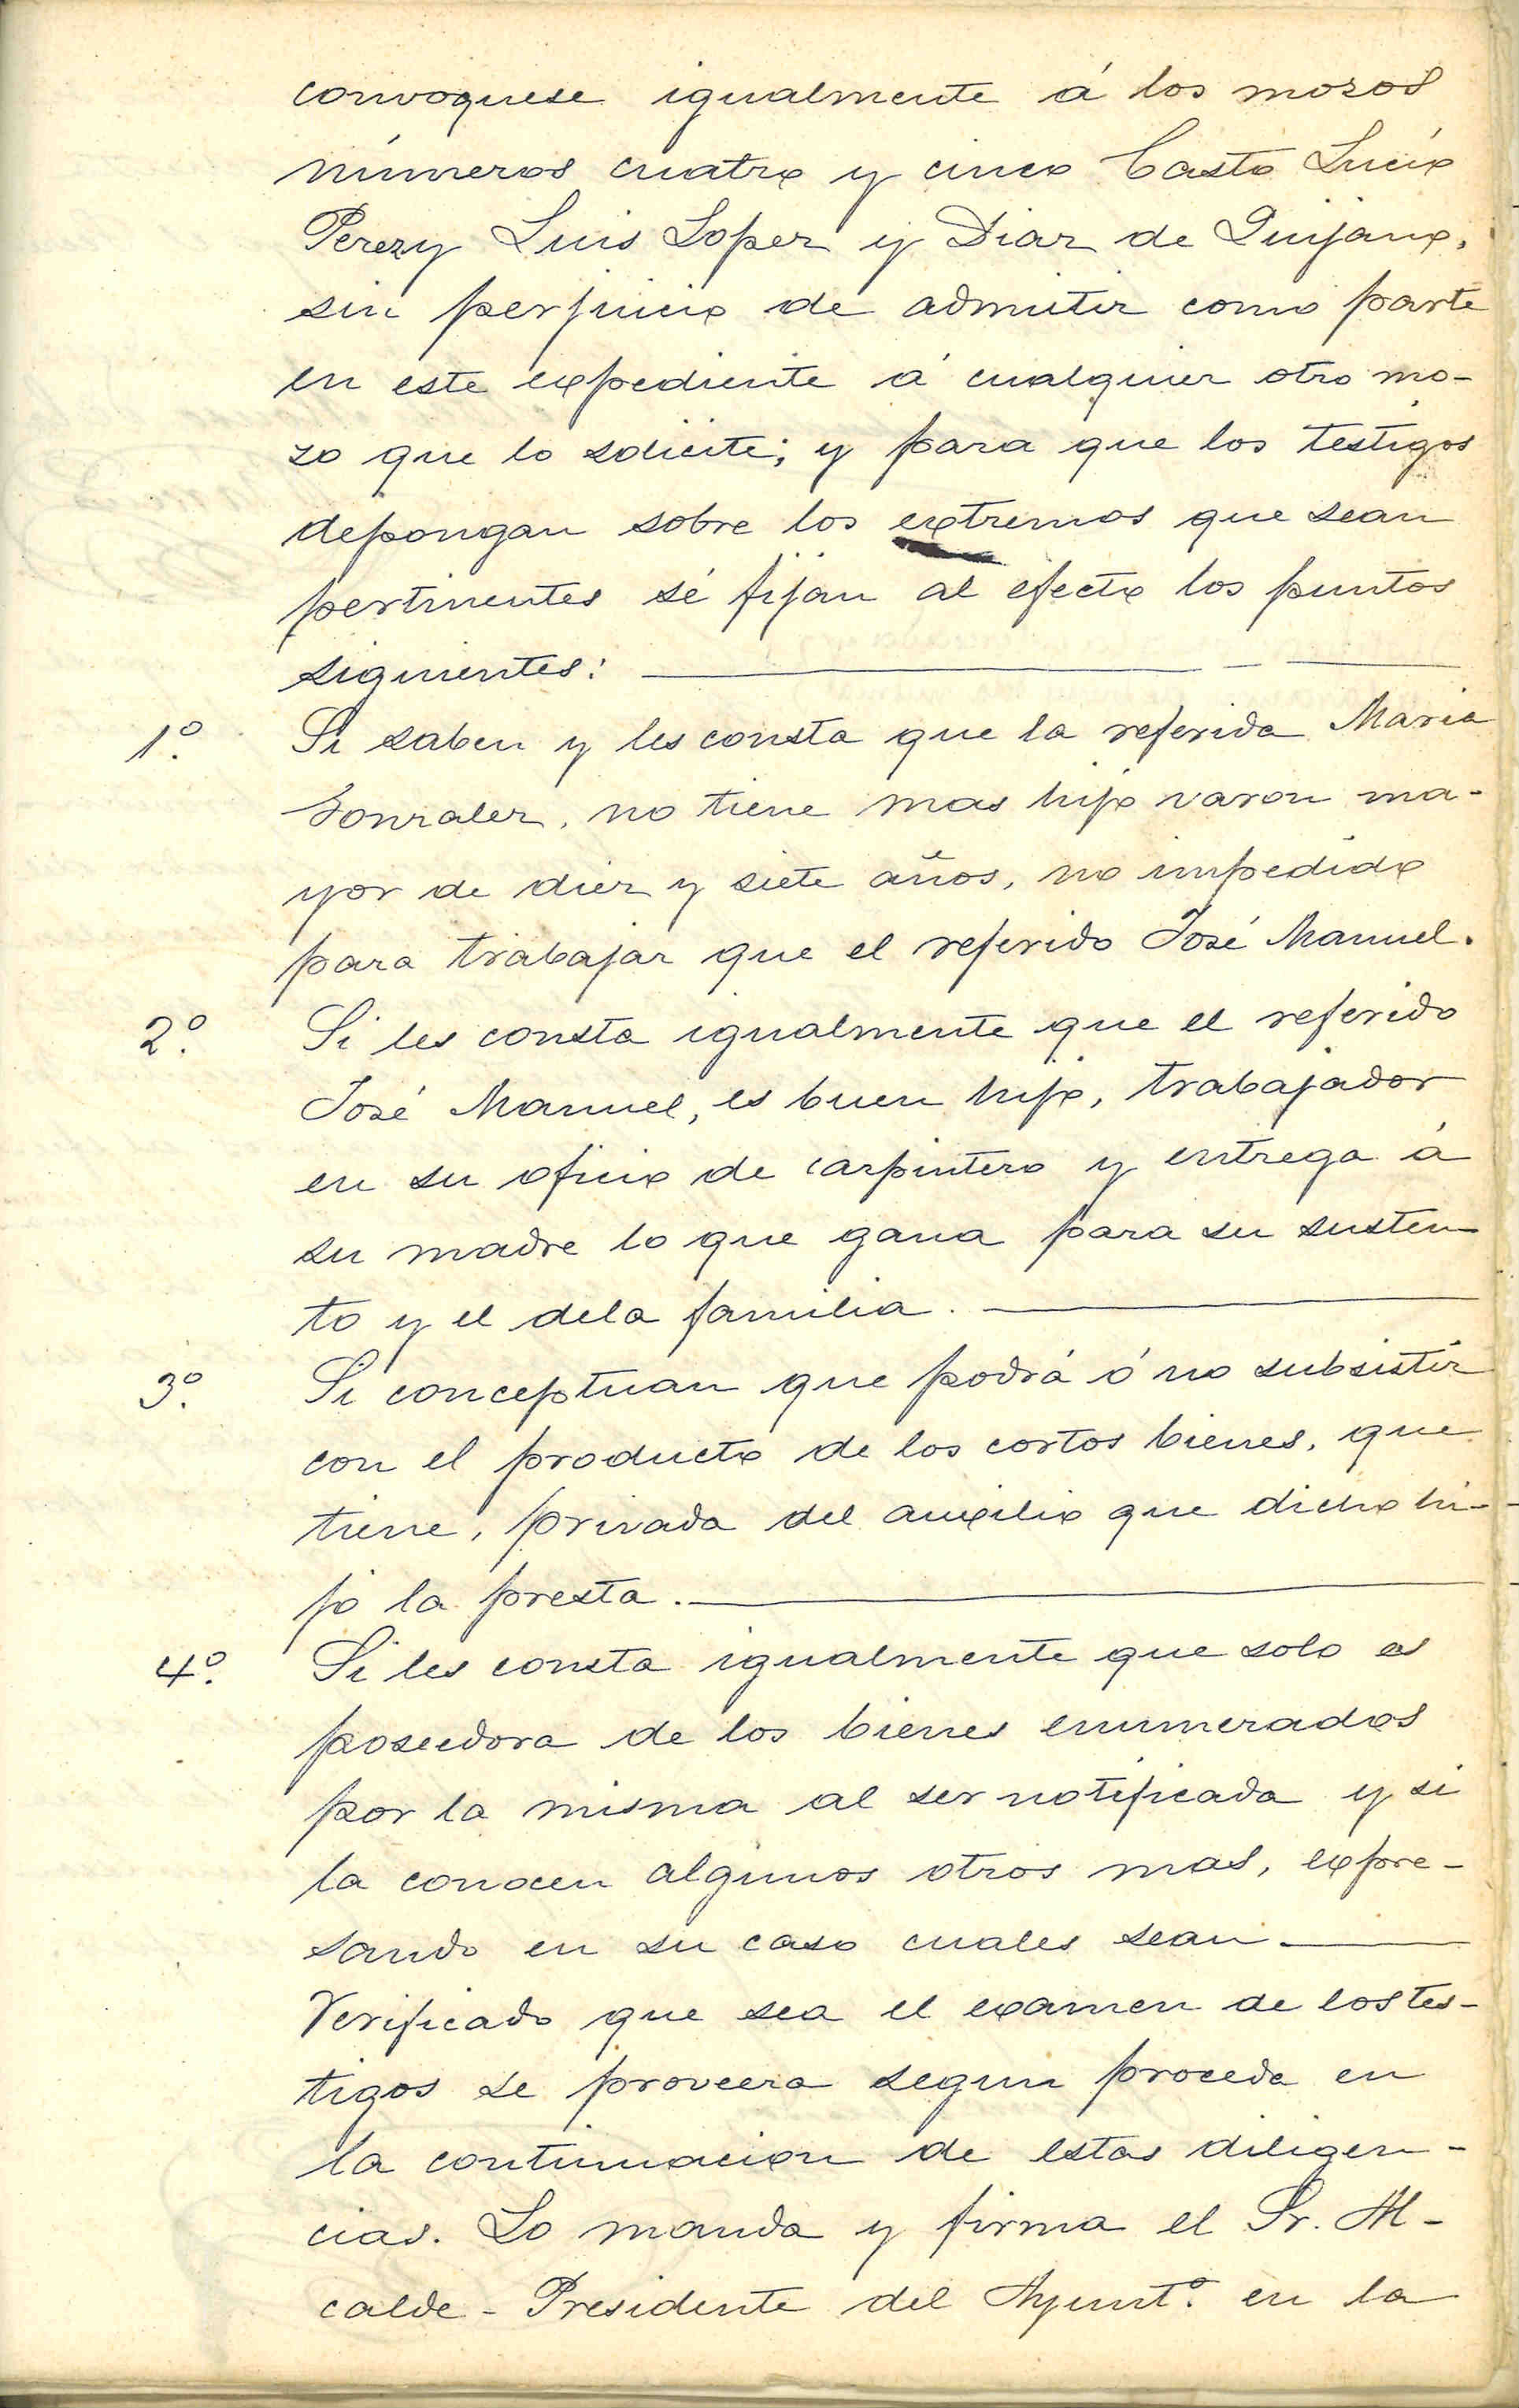 convoquese igualmente á los mozos
números cuatro y cinco Casto Lucio
Perez y Luis Lopez y Diaz de Quijano,
sin perjuicio de admitir como parte
en este expediente á cualquier otro mo-
zo que lo solicite; y para que los testigos
depongan sobre los extremos que sean
pertinentes se fijan al efecto los puntos
siguientes:
1º. Si saben y les consta que la referida Maria
Gonzalez, no tiene mas hijo varon ma-
yor de diez y siete años, no impedido
para trabajar que el referido José Manuel.
2º. Si les consta igualmente que el referido
José Manuel, es buen hijo, trabajador
en su oficio de carpintero y entrega á
su madre lo que gana para su susten-
to y el dela familia.
3º. Si conceptuan que podrá ó no subsistir
con el producto de los cortos bienes, que
tiene, privada del auxilio que dicho hi-
jo la presta.
4º. Si les consta igualmente que solo es
poseedora de los bienes enumerados
por la misma al ser notificada y si
la conocen algunos otros mas, expre-
sando en su caso cuales sean.
Verificado que sea el examen de los tes-
tigos se proveera segun proceda en
la continuacion de estas diligen-
cias. Lo manda y firma el Sr. Al-
calde-Presidente del Ayuntº. en la